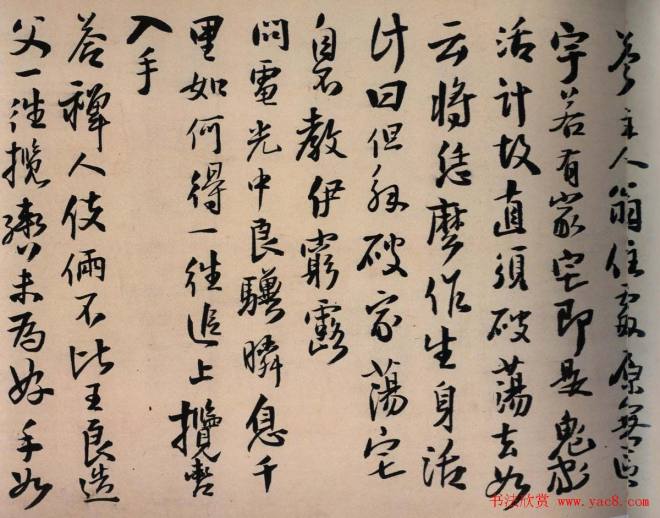 答主人翁住處原無區
宇若有家宅即是鬼家
活計故直須破蕩去如
云將恁麼作生身活
计曰但能破家蕩宅
自然教伊窮露
問電光中良驥瞬息千
里如何得一往追上攬轡
入手
答禪人伎倆不比王良造
父一往攬轡未為好手如
书法欣赏 www.yac8.com